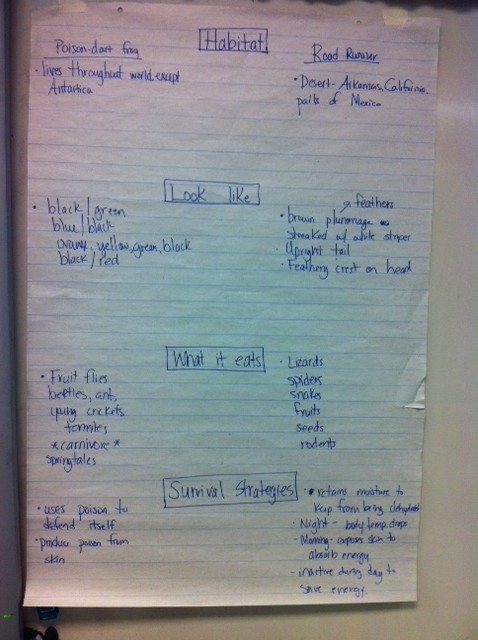 Habitat
Poison-dart frog
· lives throughout world except
Antartica
Road Runner
· Desert - Arkansas, California,
parts of Mexico
Look like
· black/green
blue/black
orange, yellow, green, black
black/red
feathers
· brown plummage
streaked w/ white stripes
· Upright tail
· Feathery crest on head
What it eats
· Fruit flies
beetles, ant,
young crickets
termites
*carnivore*
springtales
· Lizards
spiders
snakes
fruits
seeds
rodents
Survival Strategies
· uses poison to
defend itself
· produce poison from
skin
· retains moisture to
keep from being dehydrated
· Night - body temp. drops
- Morning - exposes skin to
absorb energy
- inactive during day to
save energy.